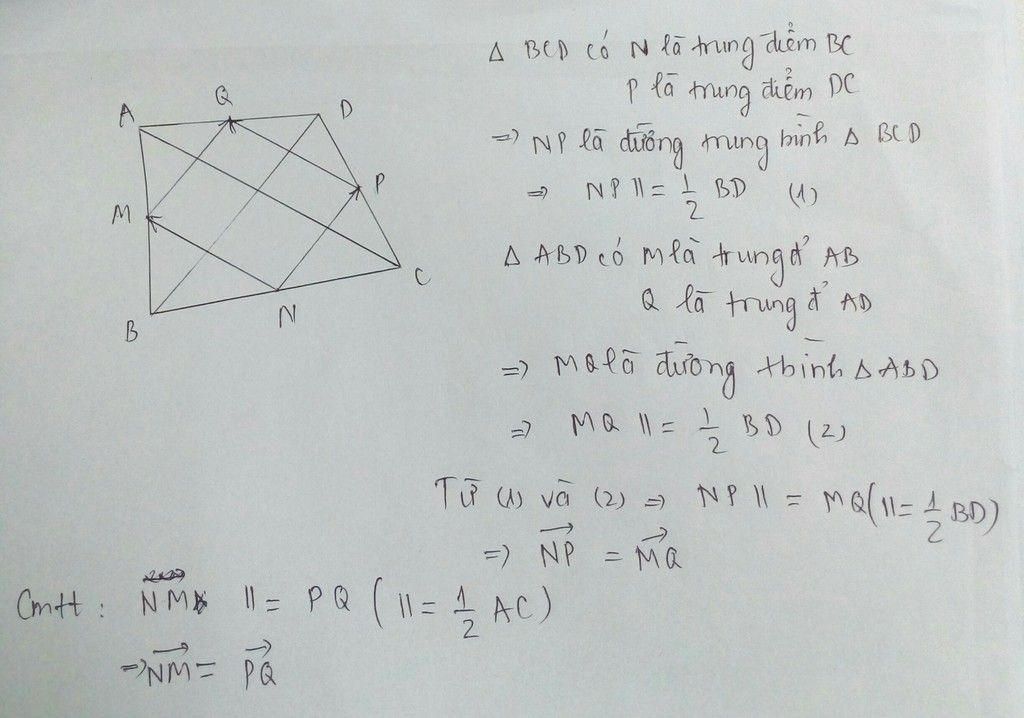 A Q D
M P
B N C
Δ BCD có N là trung điểm BC
P là trung điểm DC
=> NP là đường trung bình Δ BCD
=> NP || = 1/2 BD (1)
Δ ABD có M là trung đ' AB
Q là trung đ' AD
=> MQ là đường tbình Δ ABD
=> MQ || = 1/2 BD (2)
Từ (1) và (2) => NP || = MQ (|| = 1/2 BD)
=> \overrightarrow{NP} = \overrightarrow{MQ}
Cmtt : NM || = PQ ( || = 1/2 AC)
=> \overrightarrow{NM} = \overrightarrow{PQ}